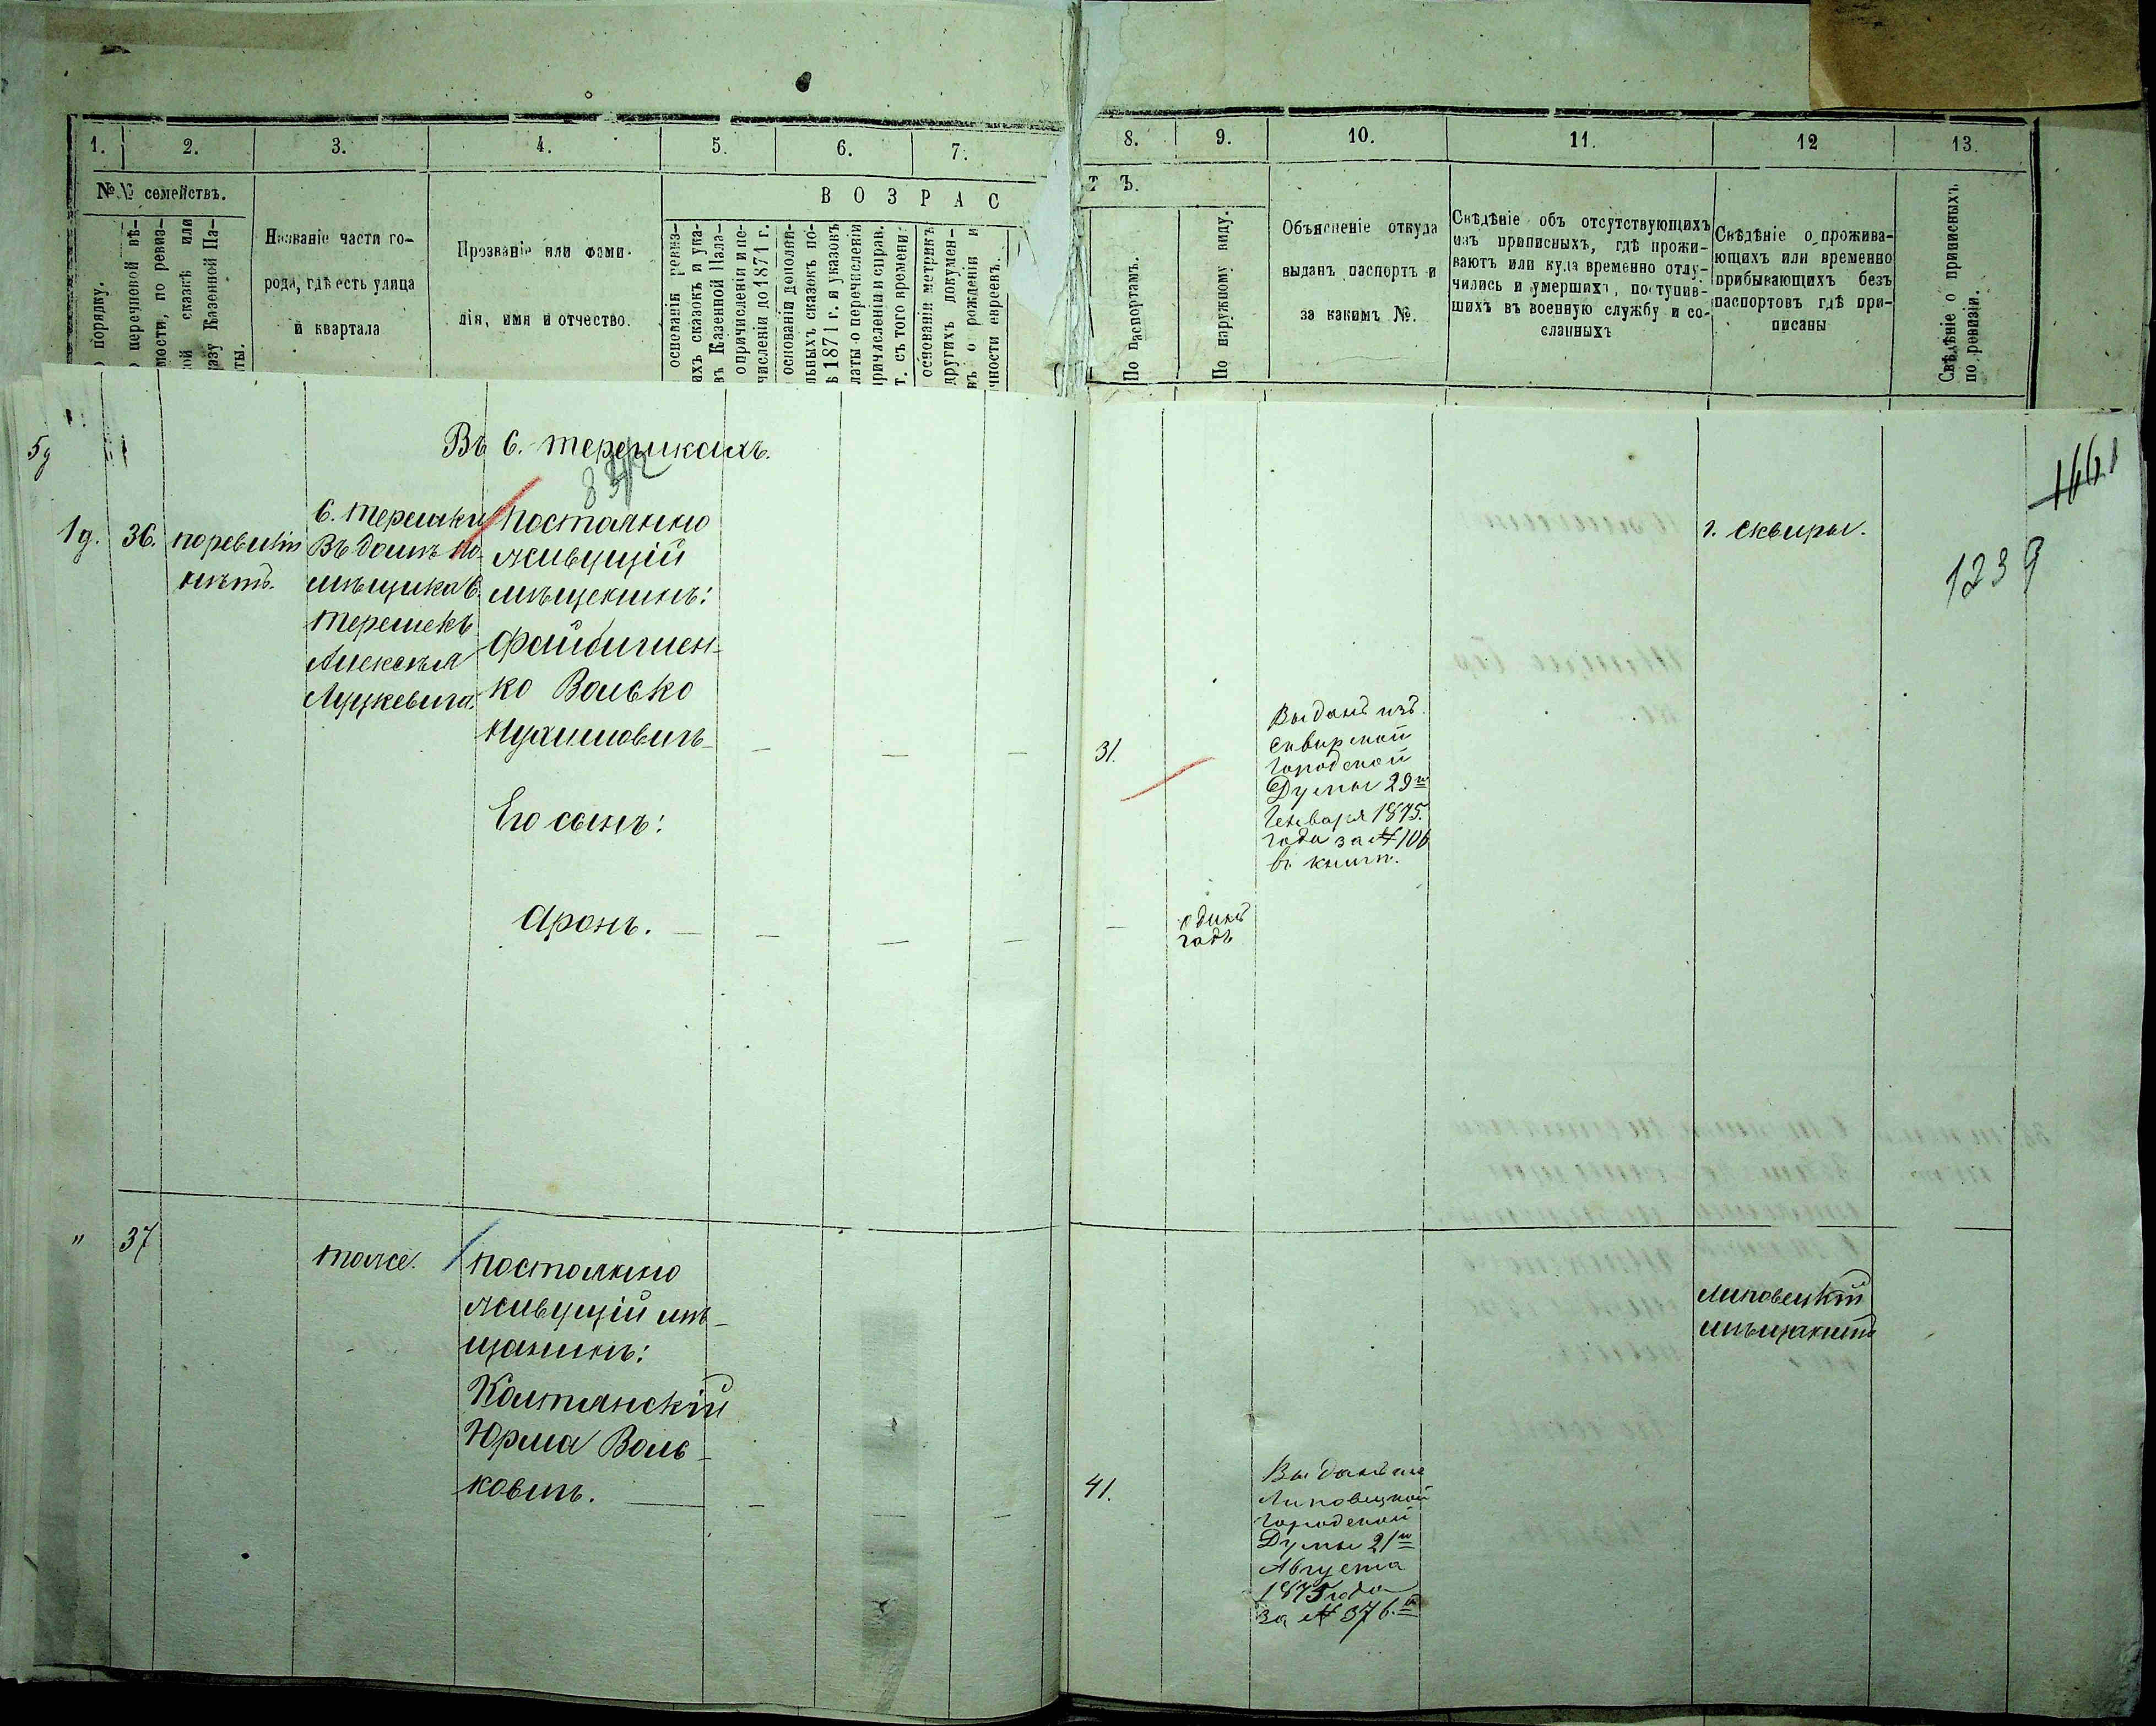 1. 2. 3. 4. 5. 6. 7. 8. 9. 10. 11. 12 13.
№№ семействъ.
порядку.
перечневой вѣ-
мости, по ревиз-
ой сказкѣ или
казу Казенной Па-
ты.
Названіе части го-
рода, гдѣ есть улица
и квартала
Прозваніе или фами-
лія, имя и отчество.
ВОЗРАС
основаніи ревиз-
ихъ сказокъ и ука-
въ Казенной Пала-
о причисленіи и пе-
численіи до 1871 г.
основаніи дополни-
льныхъ сказокъ по-
ѣ 1871 г. и указовъ
латы о перечисленіи
причисленіи и справ.
т. съ того времени.
основаніи метрикъ
другихъ докумен-
въ о рожденіи и
чности евреевъ.
т Ъ.
По паспортамъ.
По наружному виду.
Объясненіе откуда
выданъ паспортъ и
за какимъ №.
Свѣдѣніе объ отсутствующихъ
изъ приписныхъ, гдѣ прожи-
ваютъ или куда временно отлу-
чились и умершихъ, поступив-
шихъ въ военную службу и со-
сланныхъ
Свѣдѣніе о прожива-
ющихъ или временно
прибывающихъ безъ
паспортовъ гдѣ при-
писаны
Свѣдѣніе о приписныхъ
по ревизіи.
Въ с. терешкахъ.
1239
36. по ревизіи
нѣтъ.
с. терешки
Въ домѣ по-
мѣщика с.
терешекъ
Алексѣя
Луцкевича.
постоянно
живущій
мѣщенинъ:
Файбишен-
ко Волько
Нухимовичъ
31.
Выданъ изъ
Сквирской
Городской
Думы 29го
Генваря 1875.
года за № 106
въ книги.
г. Сквиры.
Его сынъ:
Аронъ.
одинъ
годъ
" 37
тоже.
постоянно
живущій мѣ-
щанинъ:
Колтянскій
Юрма Воль-
ковичъ.
41.
Выданъ изъ
Липовецкой
Городской
Думы 21го
Августа
1875 года
за № 376.
Липовецкій
мѣщанинъ